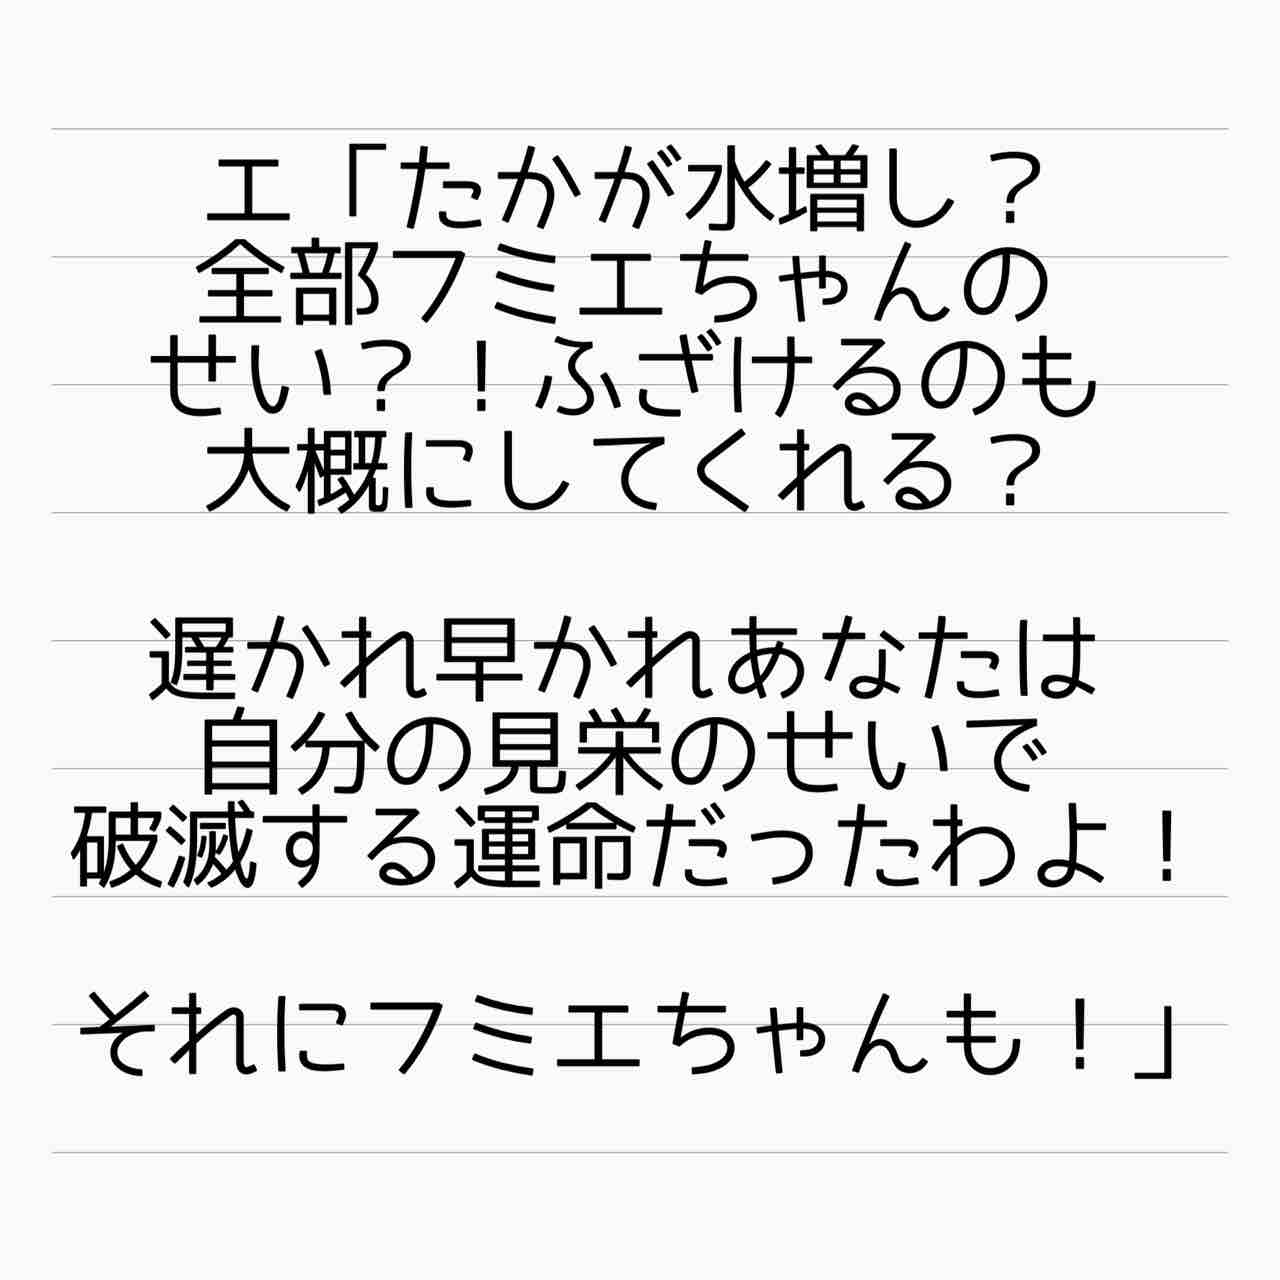 エ「たかが水増し？
全部フミエちゃんの
せい？！ふざけるのも
大概にしてくれる？
遅かれ早かれあなたは
自分の見栄のせいで
破滅する運命だったわよ！
それにフミエちゃんも！」